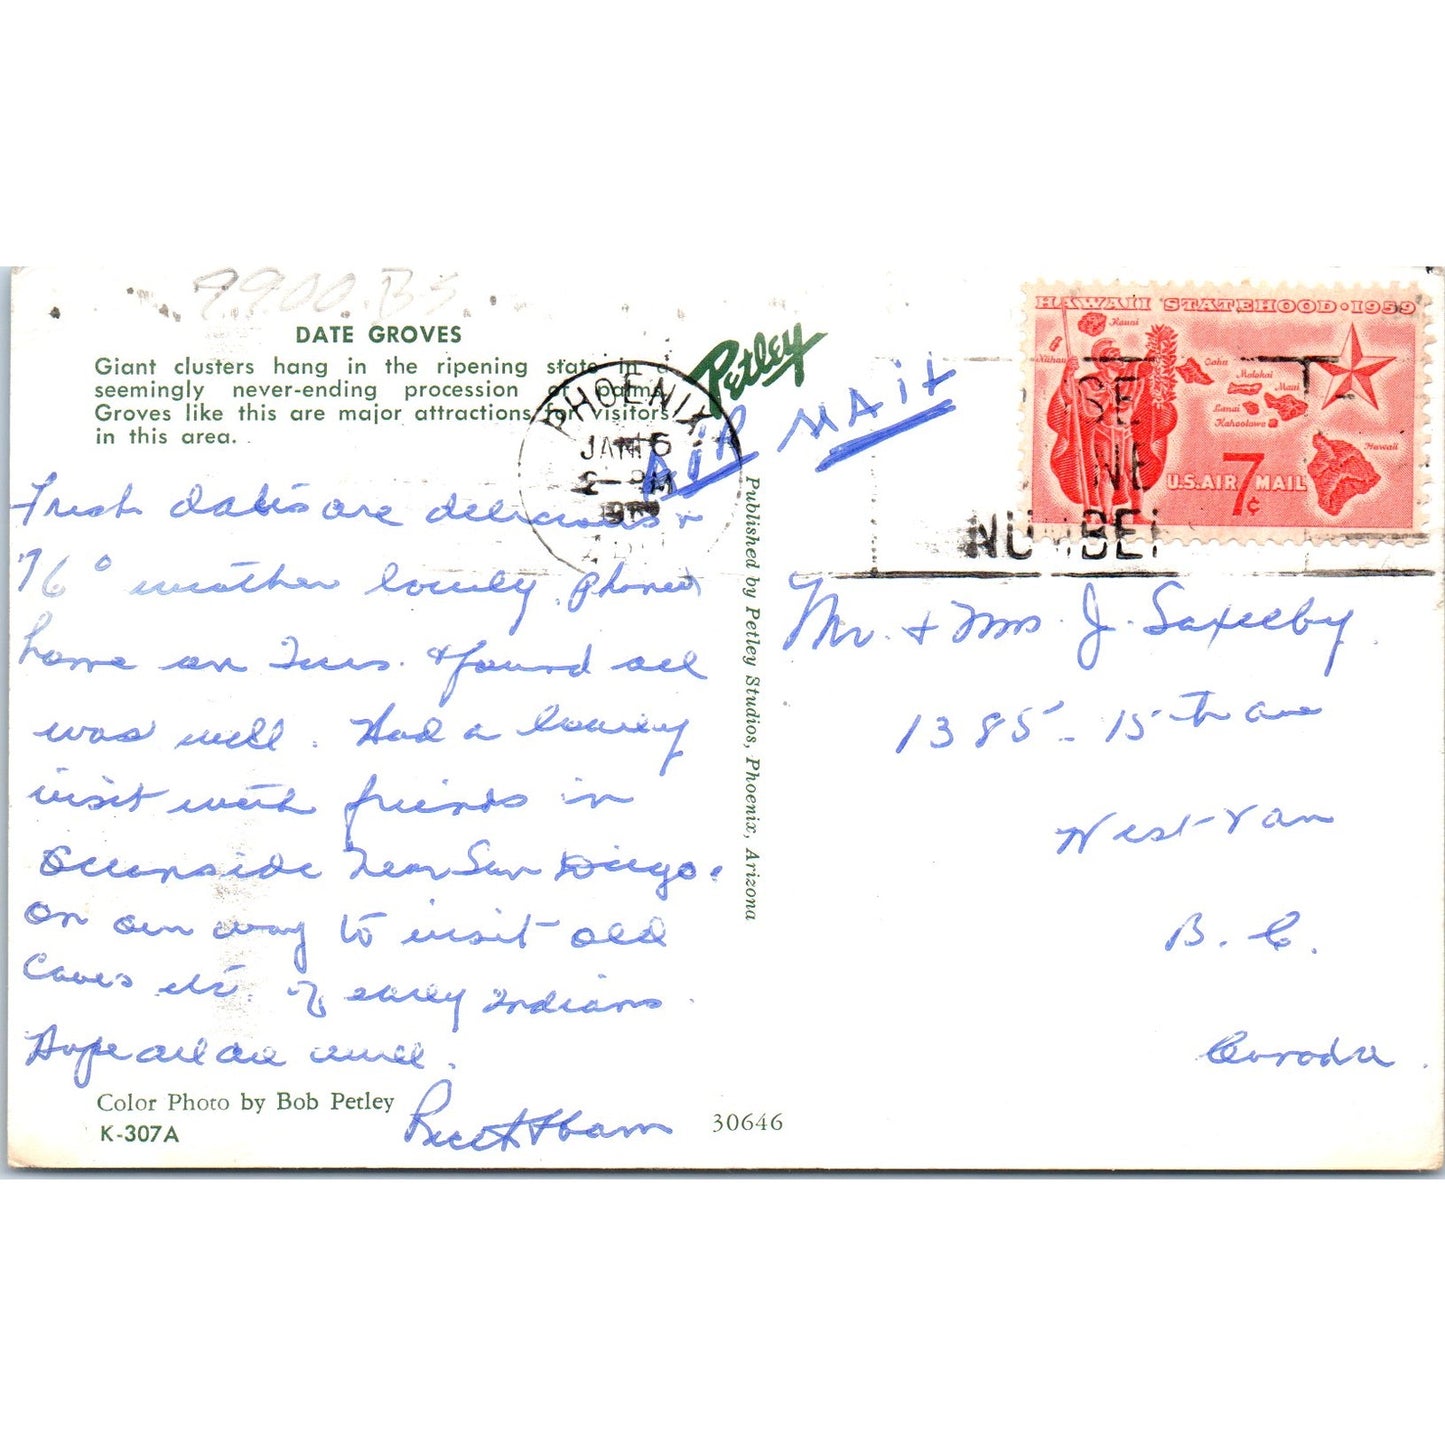 9900.B5
DATE GROVES
Giant clusters hang in the ripening state in a
seemingly never-ending procession of
Groves like this are major attractions for visitors
in this area.
Petley
AIR MAIL
PHOENIX
JAN 6
PM
HAWAII STATEHOOD · 1959
Kauai
Niihau
Oahu
Molokai
Maui
Lanai
Kahoolawe
Hawaii
U.S. AIR MAIL
7¢
NUMBER
Fresh dates are delicious +
76° weather lovely. phoned
home on Tues. & found all
was well. Had a lovely
visit with friends in
Oceanside near San Diego.
On our way to visit old
Caves etc. of early Indians.
Hope all are well.
Color Photo by Bob Petley
K-307A
30646
Published by Petley Studios, Phoenix, Arizona
Mr. + Mrs. J. Saxelby
1385 - 15th ave
West-Van
B.C.
Canada.